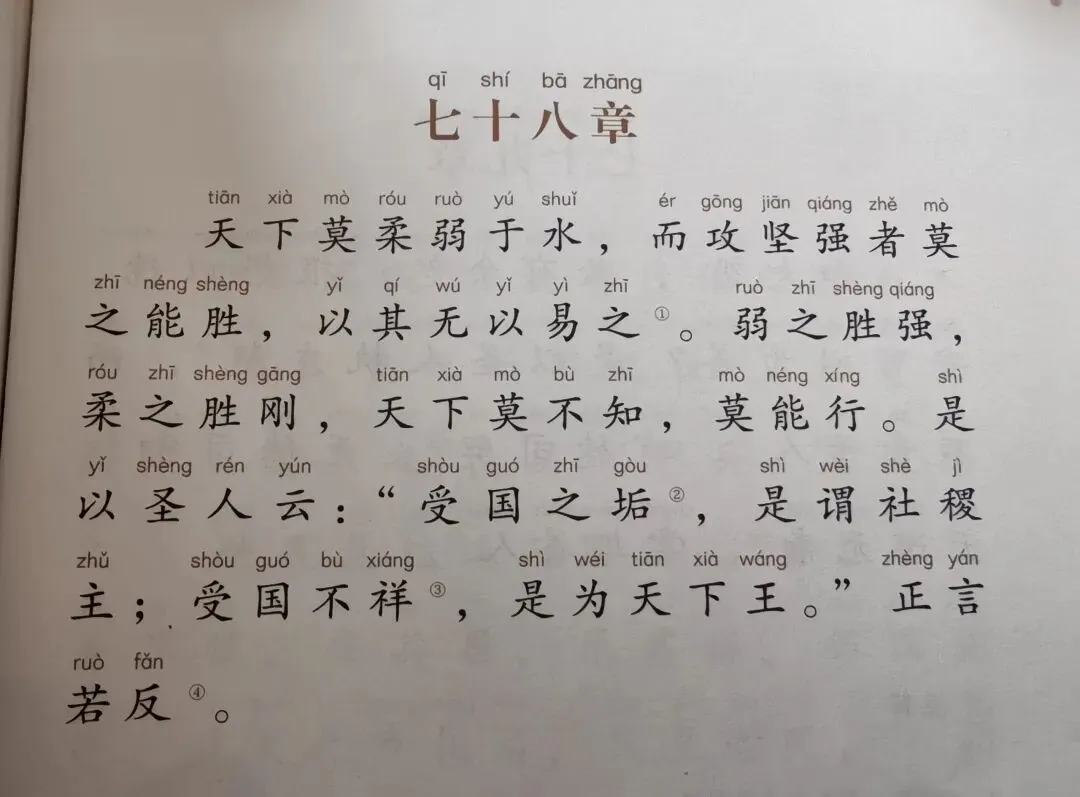 qī shí bā zhāng
七十八章
tiān xià mò róu ruò yú shuǐ ér gōng jiān qiáng zhě mò
天下莫柔弱于水，而攻坚强者莫
zhī néng shèng yǐ qí wú yǐ yì zhī ruò zhī shèng qiáng
之能胜，以其无以易之①。弱之胜强，
róu zhī shèng gāng tiān xià mò bù zhī mò néng xíng shì
柔之胜刚，天下莫不知，莫能行。是
yǐ shèng rén yún shòu guó zhī gòu shì wèi shè jì
以圣人云：“受国之垢②，是谓社稷
zhǔ shòu guó bù xiáng shì wéi tiān xià wáng zhèng yán
主；受国不祥③，是为天下王。”正言
ruò fǎn
若反④。